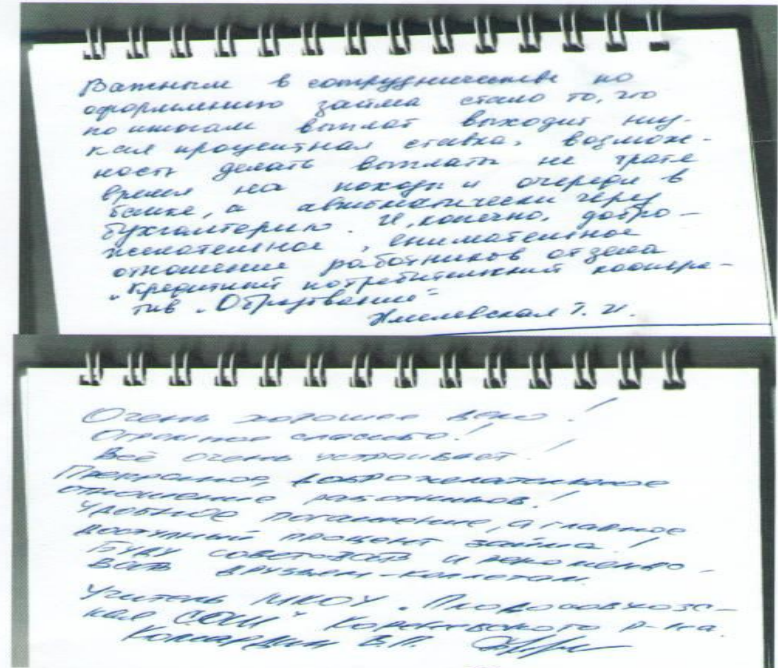 Важным в сотрудничестве по
оформлению займа стало то, что
по итогам выплат выходит низ-
кая процентная ставка, возмож-
ность делать выплаты не тратя
время на походы и очереди в
банке, а автоматически через
бухгалтерию. И, конечно, добро-
желательное, внимательное
отношение работников отдела
"Кредитный потребительский коопера-
тив "Образование"
Хмелевская Т. И.
Очень хорошее дело!
Огромное спасибо!
Всё очень устраивает!
Прекрасное, доброжелательное
отношение работников!
Удобное погашение, а главное
доступный процент займа!
Буду советовать и рекомендо-
вать друзьям-коллегам.
Учитель МКОУ "Плодосовхозс-
кая СОШ" р-на.
В.П.